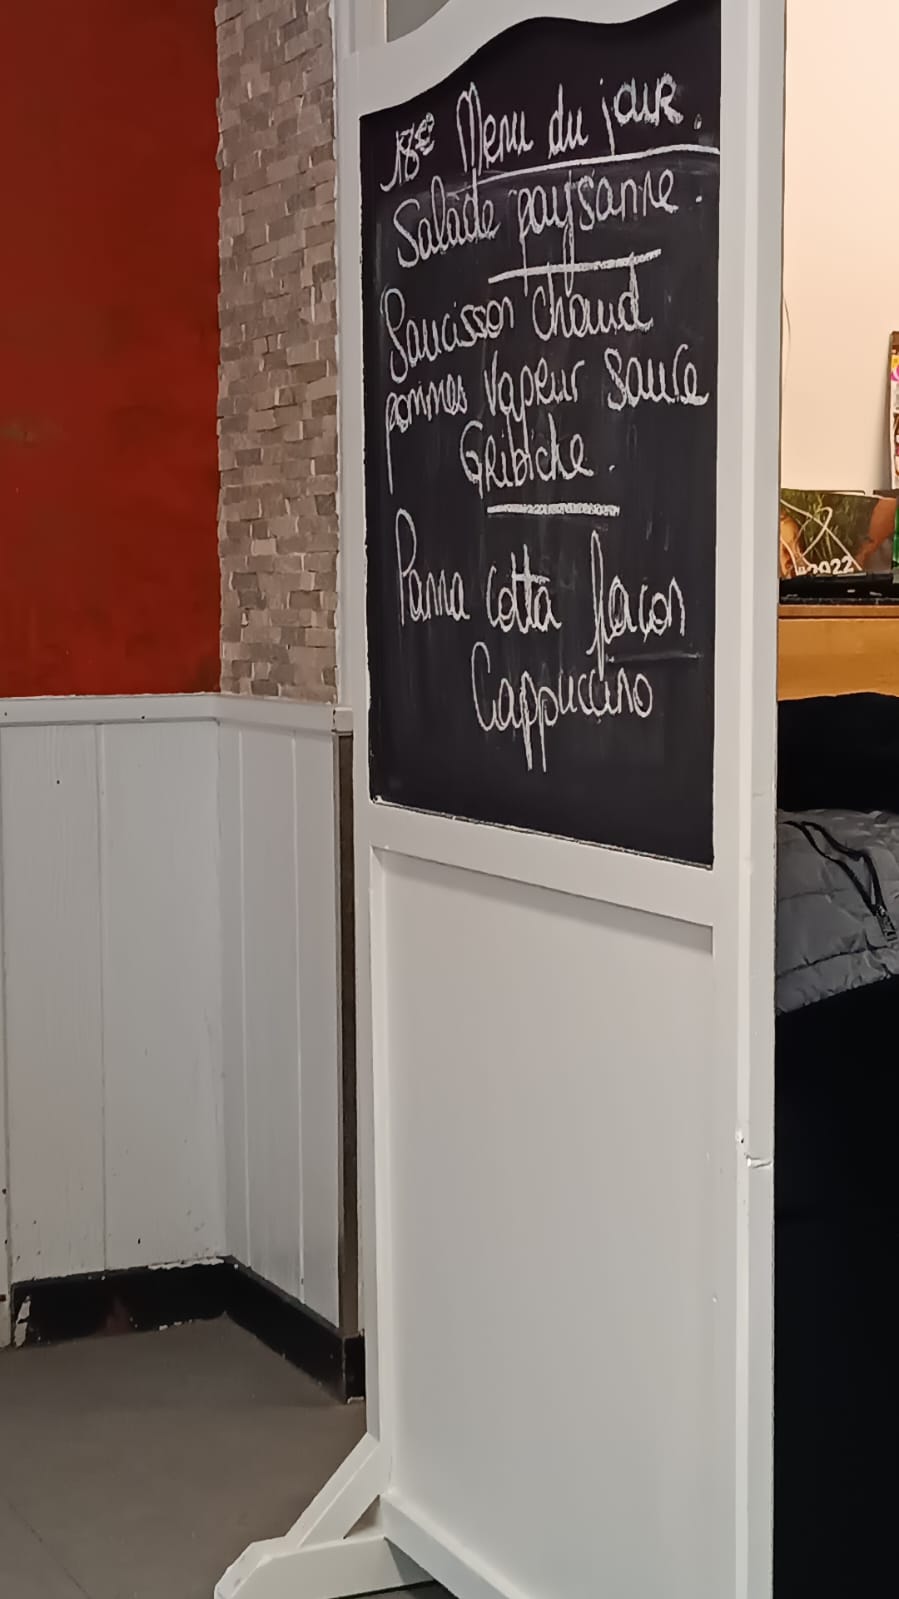 18€ Menu du jour.
Salade paysanne.
Saucisson chaud
pommes vapeur sauce
Gribiche.
Panna cotta façon
Cappuccino
2022